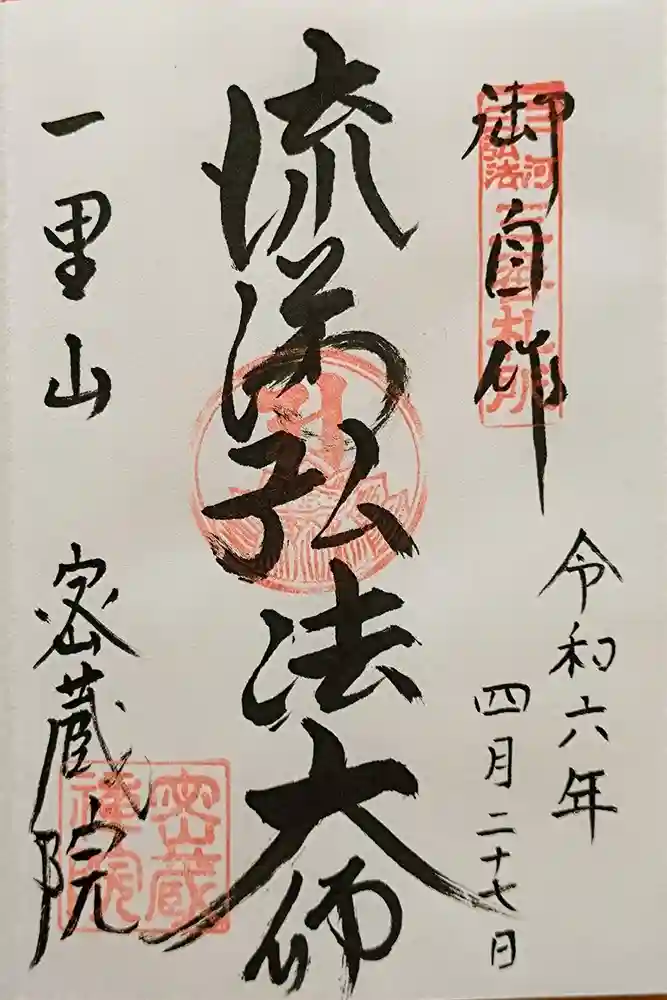 御自作
令和六年
四月二十七日
流涕弘法大師
一里山
密蔵院
三河
弘法
札所
密蔵
禅院